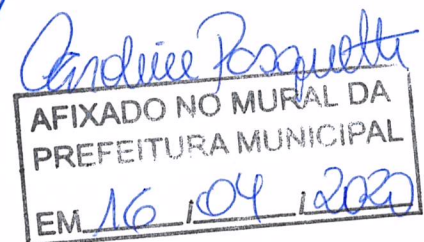 Caroline Pasquetti
AFIXADO NO MURAL DA
PREFEITURA MUNICIPAL
EM 16 / 04 / 2020